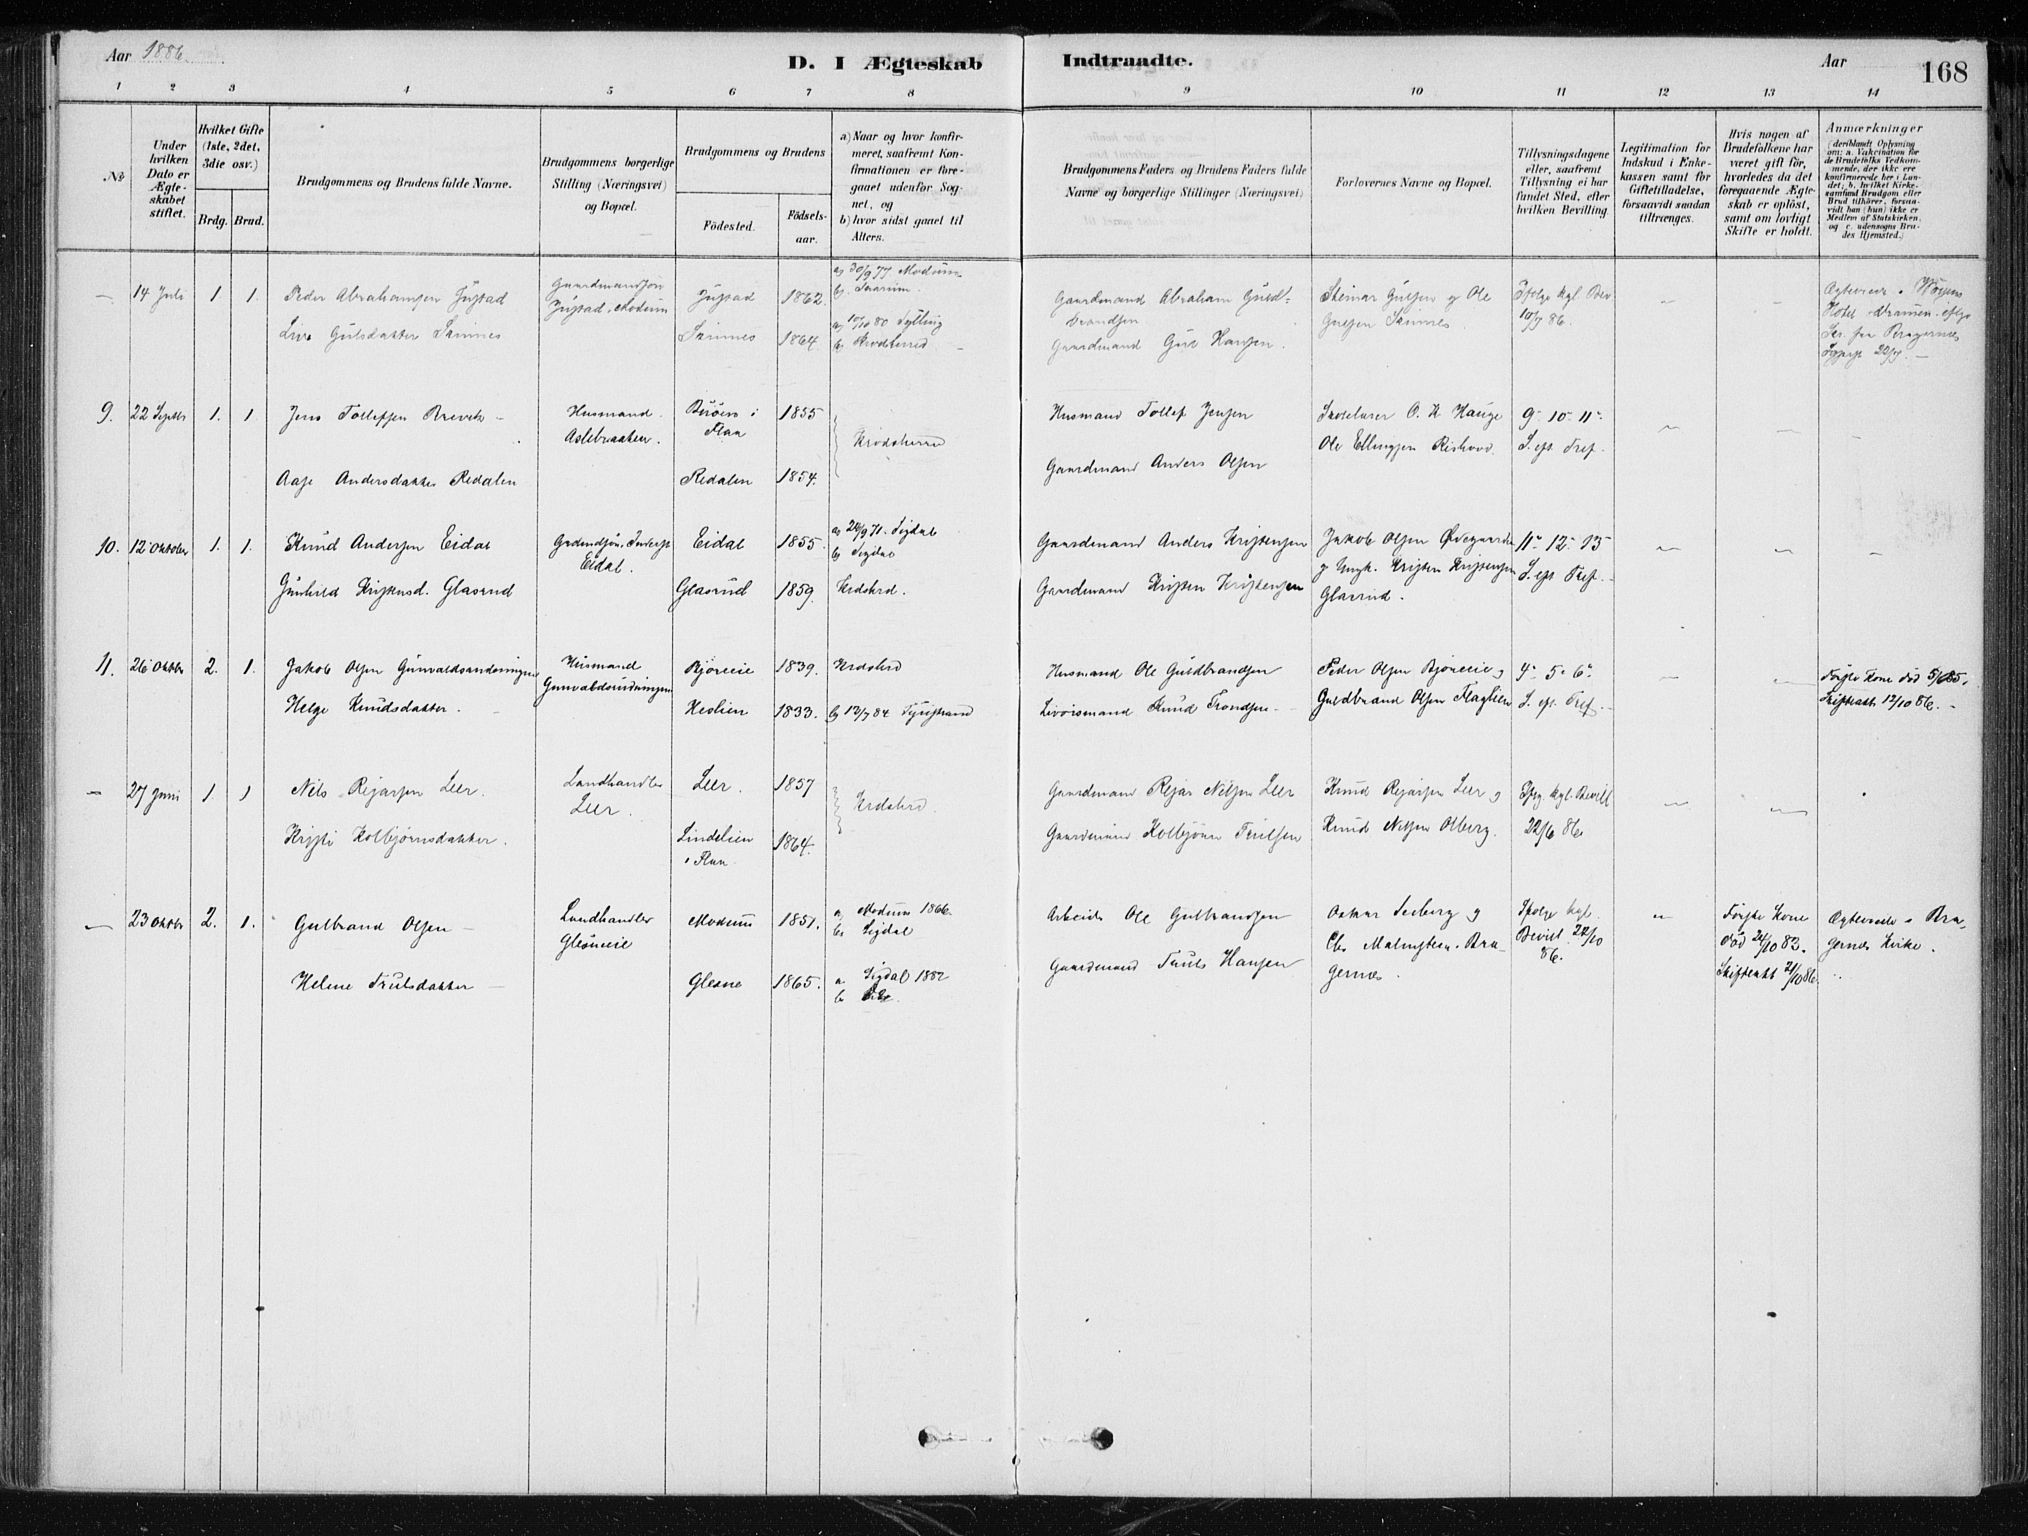 Aar 1886.
D. I Ægteskab Indtraadte.
Aar 168
1 2 3 4 5 6 7 8 9 10 11 12 13 14
No
Under hvilken Dato er Ægteskabet stiftet.
Hvilket Gifte (1ste, 2det, 3die osv.)
Brdg. Brud.
Brudgommens og Brudens fulde Navne.
Brudgommens borgerlige Stilling (Næringsvei) og Bopæl.
Brudgommens og Brudens
Födested. Födsels-aar.
a) Naar og hvor konfirmeret, saafremt Konfirmationen er foregaaet udenfor Sognet, og
b) hvor sidst gaaet til Alters.
Brudgommens Faders og Brudens Faders fulde Navne og borgerlige Stillinger (Næringsvei)
Forlovernes Navne og Bopæl.
Tillysningsdagene eller, saafremt Tillysning ei har fundet Sted, efter hvilken Bevilling.
Legitimation for Indskud i Enkekassen samt for Giftetilladelse, forsaavidt saadan tiltrænges.
Hvis nogen af Brudefolkene har været gift för, hvorledes da det foregaaende Ægteskab er oplöst, samt om lovligt Skifte er holdt.
Anmærkninger (deriblandt Oplysning om: a. Vakcination for de Brudefolks Vedkommende, der ikke ere konfirmerede her i Landet; b. hvilket Kirkesamfund Brudgom eller Brud tilhörer, forsaavidt han (hun) ikke er Medlem af Statskirken, og c. udensogns Brudes Hjemsted.)
— 14 Juli 1. 1. Peder Abrahamsen Justad Gaardmandssön Justad, Modum Justad 1862. a) 30/9 77 Modum b) Snarum. Gaardmand Abraham Guldbrandsen Steinar Gulsen og Ole Gulsen Skinnes. Ifölge kgl. Bev. 10/7 86.
Live Gulsdatter Skinnes Skinnes 1864. a) 10/10 80 Sylling b) Krödsherred Gaardmand Gul Hansen.
Hotel Drammen
9. 22 Septbr 1. 1 Jens Tollefsen Brevik Husmand Aslebraaten. i Flaa 1855 Krödsherred Husmand Tollef Jensen Skolelærer O. K. Hauge Ole Ellingsen Rishovd. 9- 10- 11- S. eft. Tref.
Aase Andersdatter Redalen Redalen 1854. Gaardmand Anders Olsen
10. 12 Oktober 1. 1. Knud Andersen Eidal Eidal. Eidal 1855. a) 24/9 71. Sigdal b) Sigdal Gaardmand Anders Kristensen Jakob Olsen Ødegaarden og Ungk. Kristen Kristensen Glasrud. 11- 12- 13- S. eft. Tref.
Gunhild Kristensd. Glasrud Glasrud 1859. Krdshrd. Gaardmand Kristen Kristensen
11. 26 Oktbr 2. 1. Jakob Olsen Gunvaldsrudningen Husmand Gunvaldsrudningen Björeeie 1839. Krdshrd Husmand Ole Guldbrandsen Peder Olsen Björeeie og Guldbrand Olsen 4- 5- 6- S. eft. Tref. Förste Kone död Skifteatt. 12/10 86.
Helge Knudsdatter. Medlien 1833. b) 12/7 84 Knud Trondsen
— 27 Juni 1. 1 Nils Rejarsen Leer. Landhandler Leer. Leer. 1857 Krdshrd. Gaardmand Rejar Nilsen Leer Knud Rejarsen Leer og Knud Nilsen Olberg. Ifg. kgl. Bevill 22/6 86.
Kristi Kolbjörnsdatter. Lindelien i Flaa. 1864. Gaardmand Kolbjörn Trulsen
— 23 Oktbr 2. 1. Gulbrand Olsen Landhandler Glesneeie Modum 1851. a) Modum 1866. b) Sigdal Arbeider Ole Gulbrandsen Oskar Seeberg og Chr Malmsteen. Bragernes. Ifölge kgl. Bevill. 22/10 86. Förste Kone död 24/10 83. Skifteatt 21/10 86. Ægteviede i Bragernes Kirke.
Helene Trulsdatter Glesne 1865. a. Sigdal 1882 Gaardmand Truls Hansen